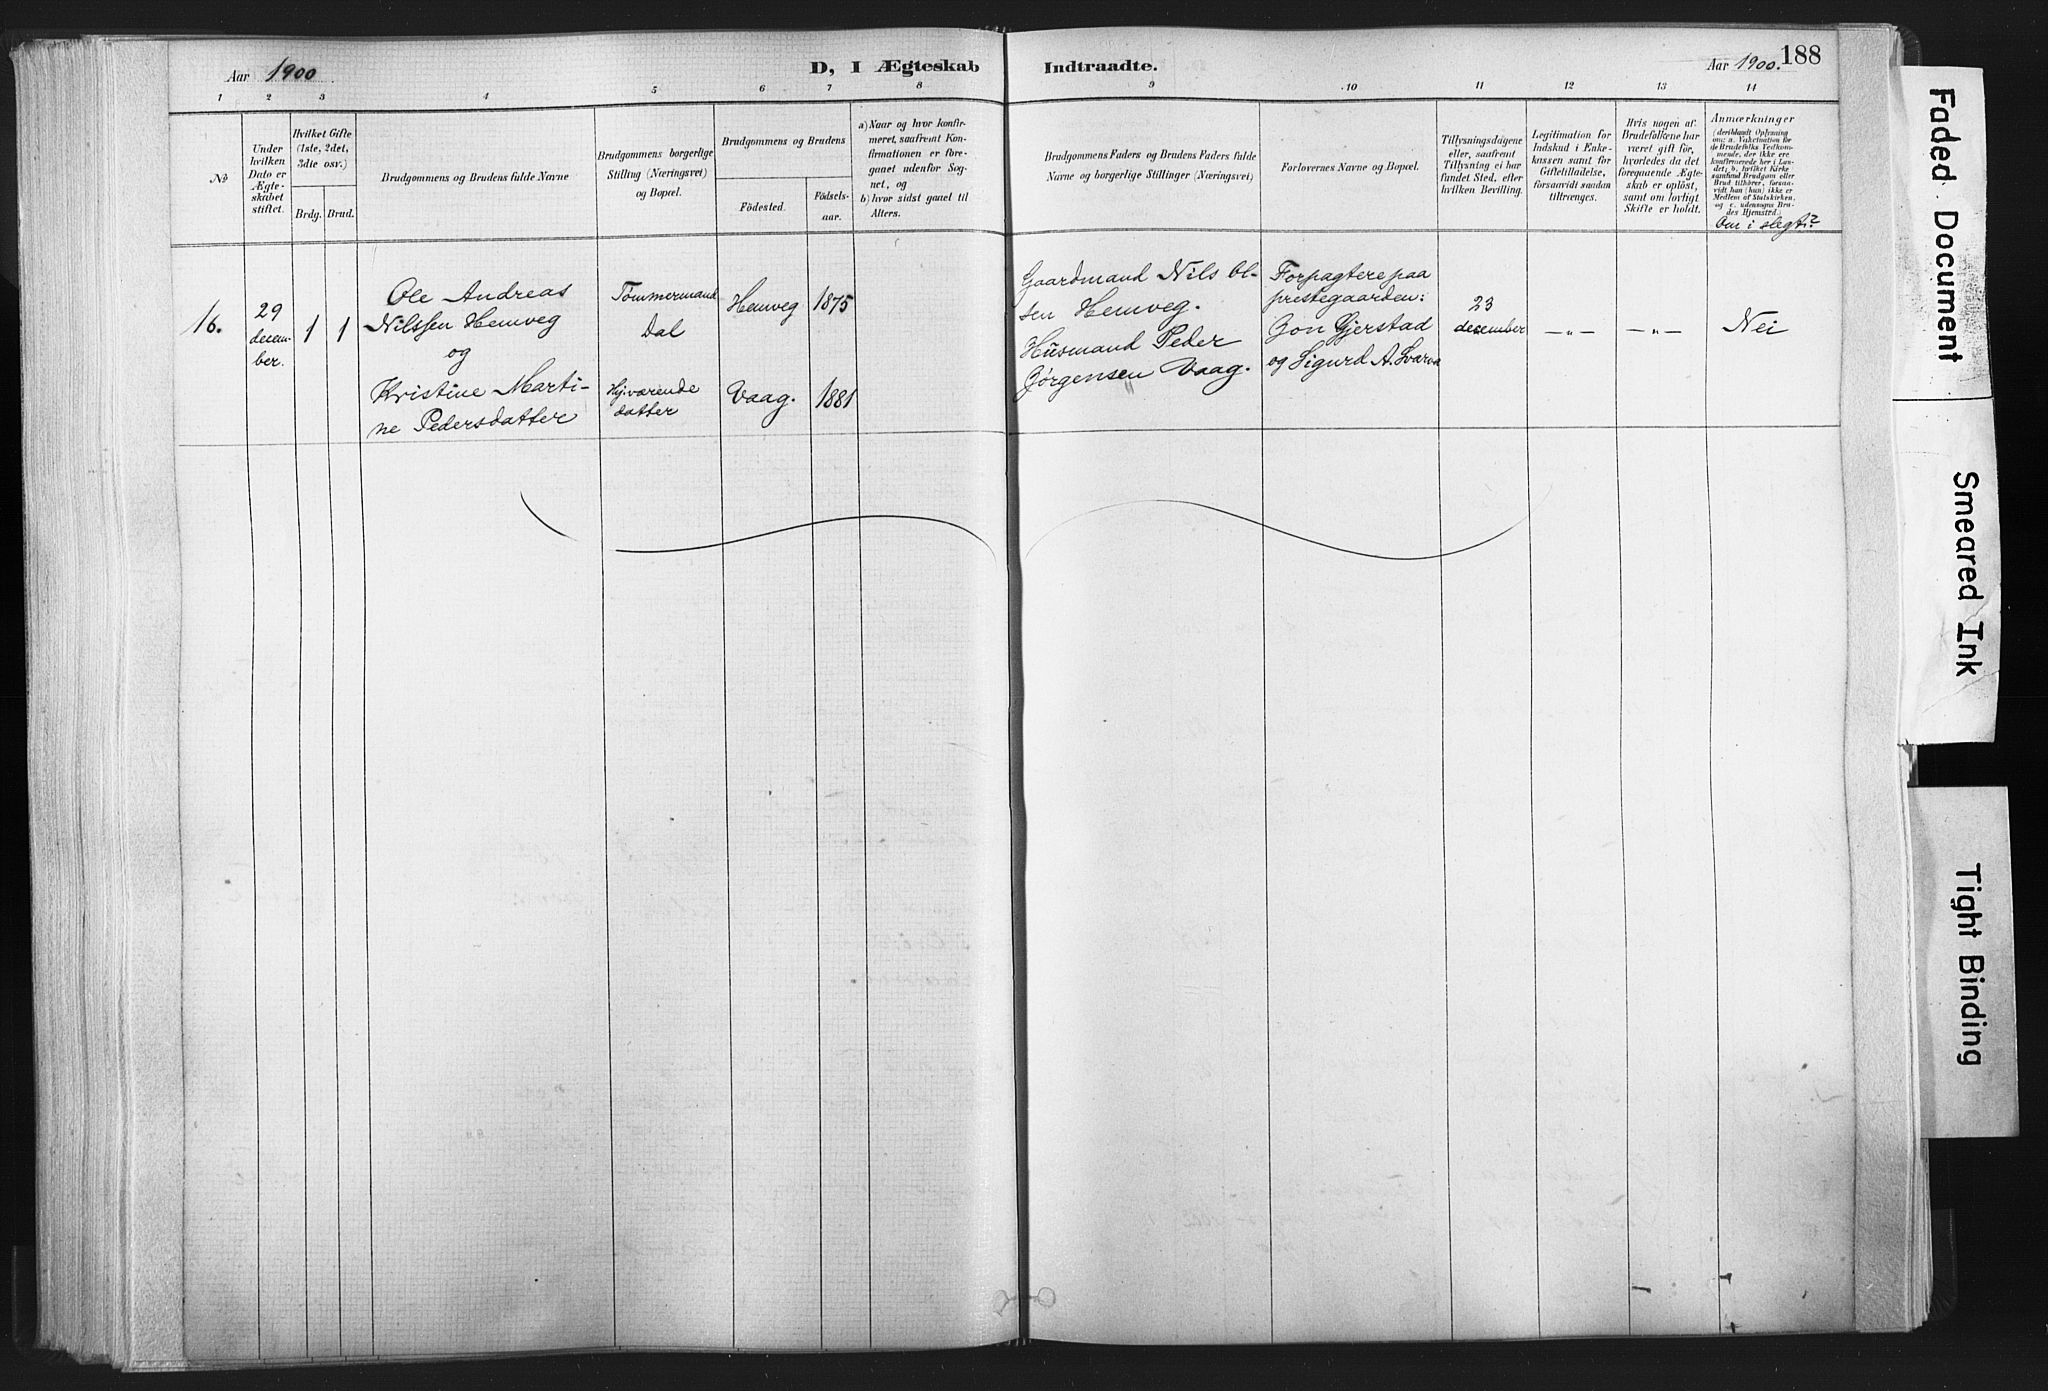 Aar 1900
D, I Ægteskab Indtraadte.
Aar 1900. 188
1 2 3 4 5 6 7 8 9 10 11 12 13 14
No
Under
hvilken
Dato er
Ægte-
skabet
stiftet.
Hvilket Gifte
(1ste, 2det,
3die osv.)
Brdg. Brud.
Brudgommens og Brudens fulde Navne
Brudgommens borgerlige
Stilling (Næringsvei)
og Bopæl.
Brudgommens og Brudens
Födested.
Födsels-
aar.
a) Naar og hvor konfir-
meret, saafremt Kon-
firmationen er fore-
gaaet udenfor Sog-
net, og
b) hvor sidst gaaet til
Alters.
Brudgommens Faders og Brudens Faders fulde
Navne og borgerlige Stillinger (Næringsvei)
Forlovernes Navne og Bopæl.
Tillysningsdagene
eller, saafremt
Tillysning ei har
fundet Sted, efter
hvilken Bevilling.
Legitimation for
Indskud i Enke-
kassen samt for
Giftetilladelse,
forsaavidt saadan
tiltrænges.
Hvis nogen af
Brudefolkene har
været gift för,
hvorledes da det
foregaaende Ægte-
skab er oplöst,
samt om lovligt
Skifte er holdt.
Anmærkninger
(deriblandt Oplysning
om: a. Vakcination for
de Brudefolks Vedkom-
mende, der ikke ere
konfirmerede her i Lan-
det; b. hvilket Kirke
samfund Brudgom eller
Brud tilhörer, forsaa-
vidt han (hun) ikke er
Medlem af Statskirken,
og c. udensogns Bru-
des Hjemsted.)
Om i slegt?
16.
29
decem-
ber.
1 1
Ole Andreas
Nilssen Hemveg
og
Kristine Marti-
ne Pedersdatter
Tømmermand
Dal
Hj.værende
datter
Hemveg 1875
Vaag. 1881
Gaardmand Nils Ol-
sen Hemveg.
Husmand Peder
Jørgensen Vaag.
Forpagtere paa
prestegaarden:
Jon Gjerstad
og Sigurd A. Svarva
23
december
—"— —"— Nei
Faded Document
Smeared Ink
Tight Binding